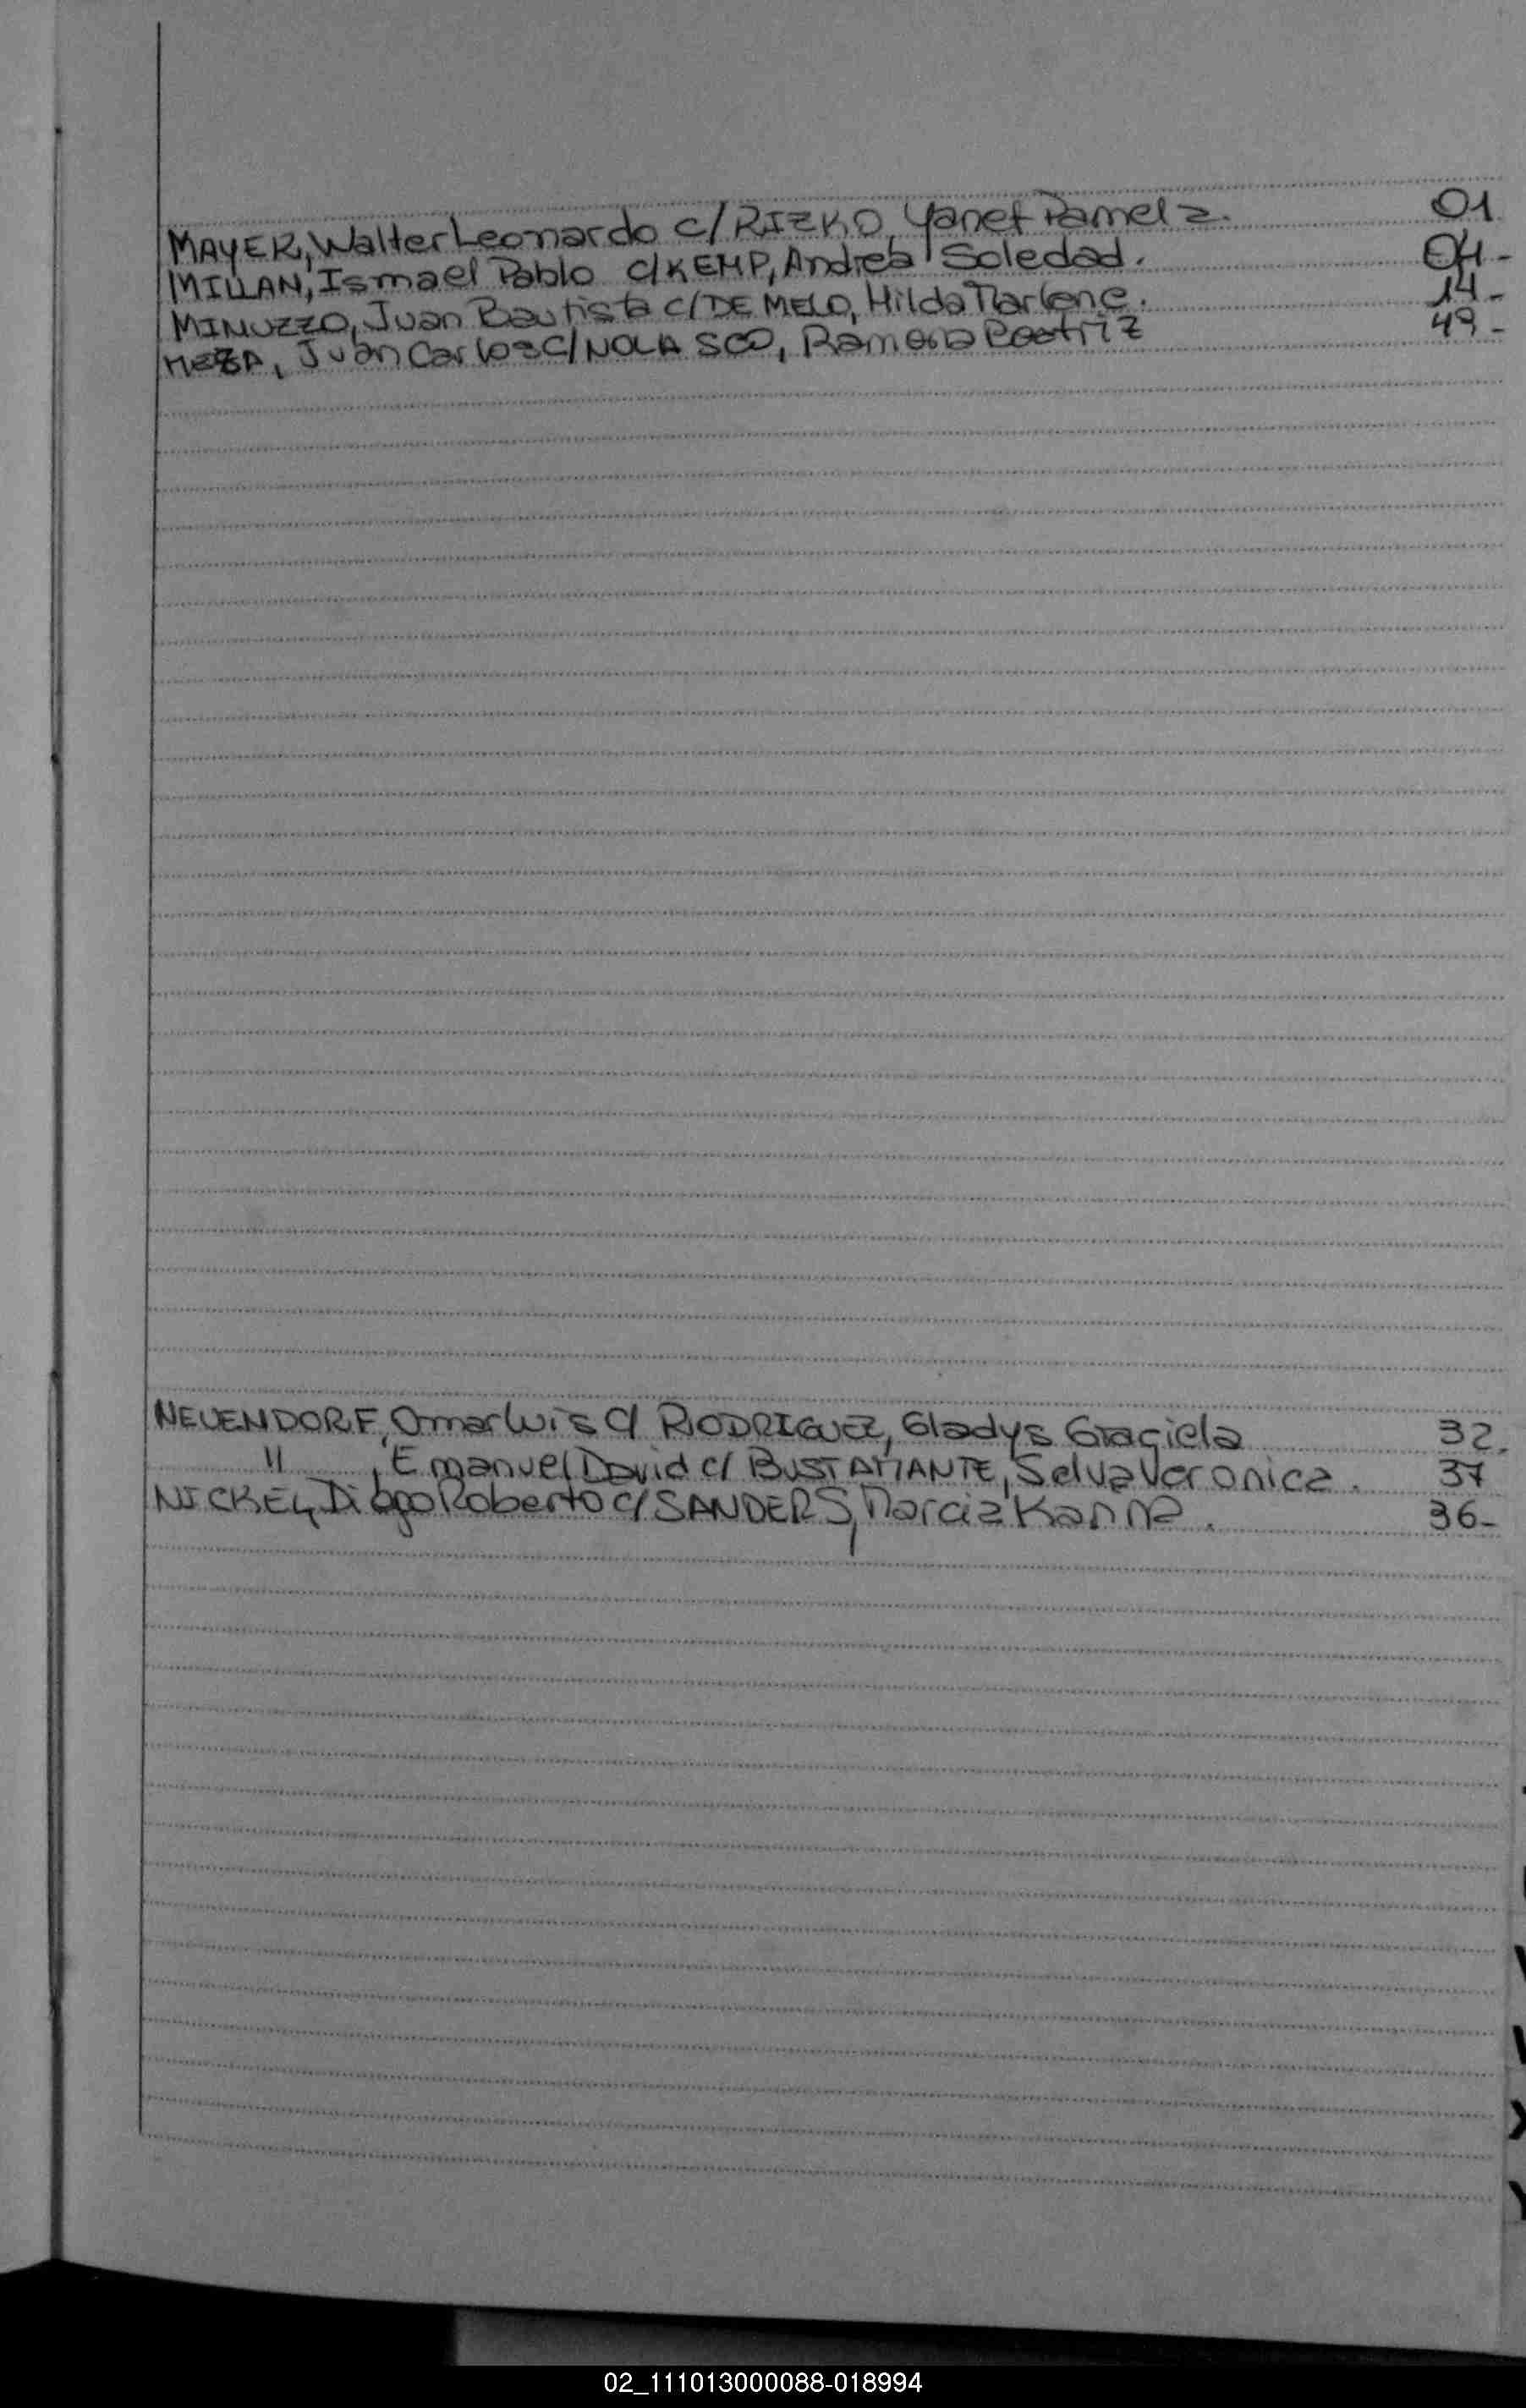 MAYER, Walter Leonardo c/ RIZKO, Yanet Pamela. 01
MILLAN, Ismael Pablo c/ KEMP, Andrea Soledad. 04-
MINUZZO, Juan Bautista c/ DE MELO, Hilda Marlene. 14-
MEZA, Juan Carlos c/ NOLASCO, Ramona Beatriz 49-
NEUENDORF, Omar Luis c/ RODRIGUEZ, Gladys Graciela 32.
" , Emanuel David c/ BUSTAMANTE, Selva Veronica. 37
NICKEL, Diego Roberto c/ SANDERS, Marcia 36-
02_111013000088-018994